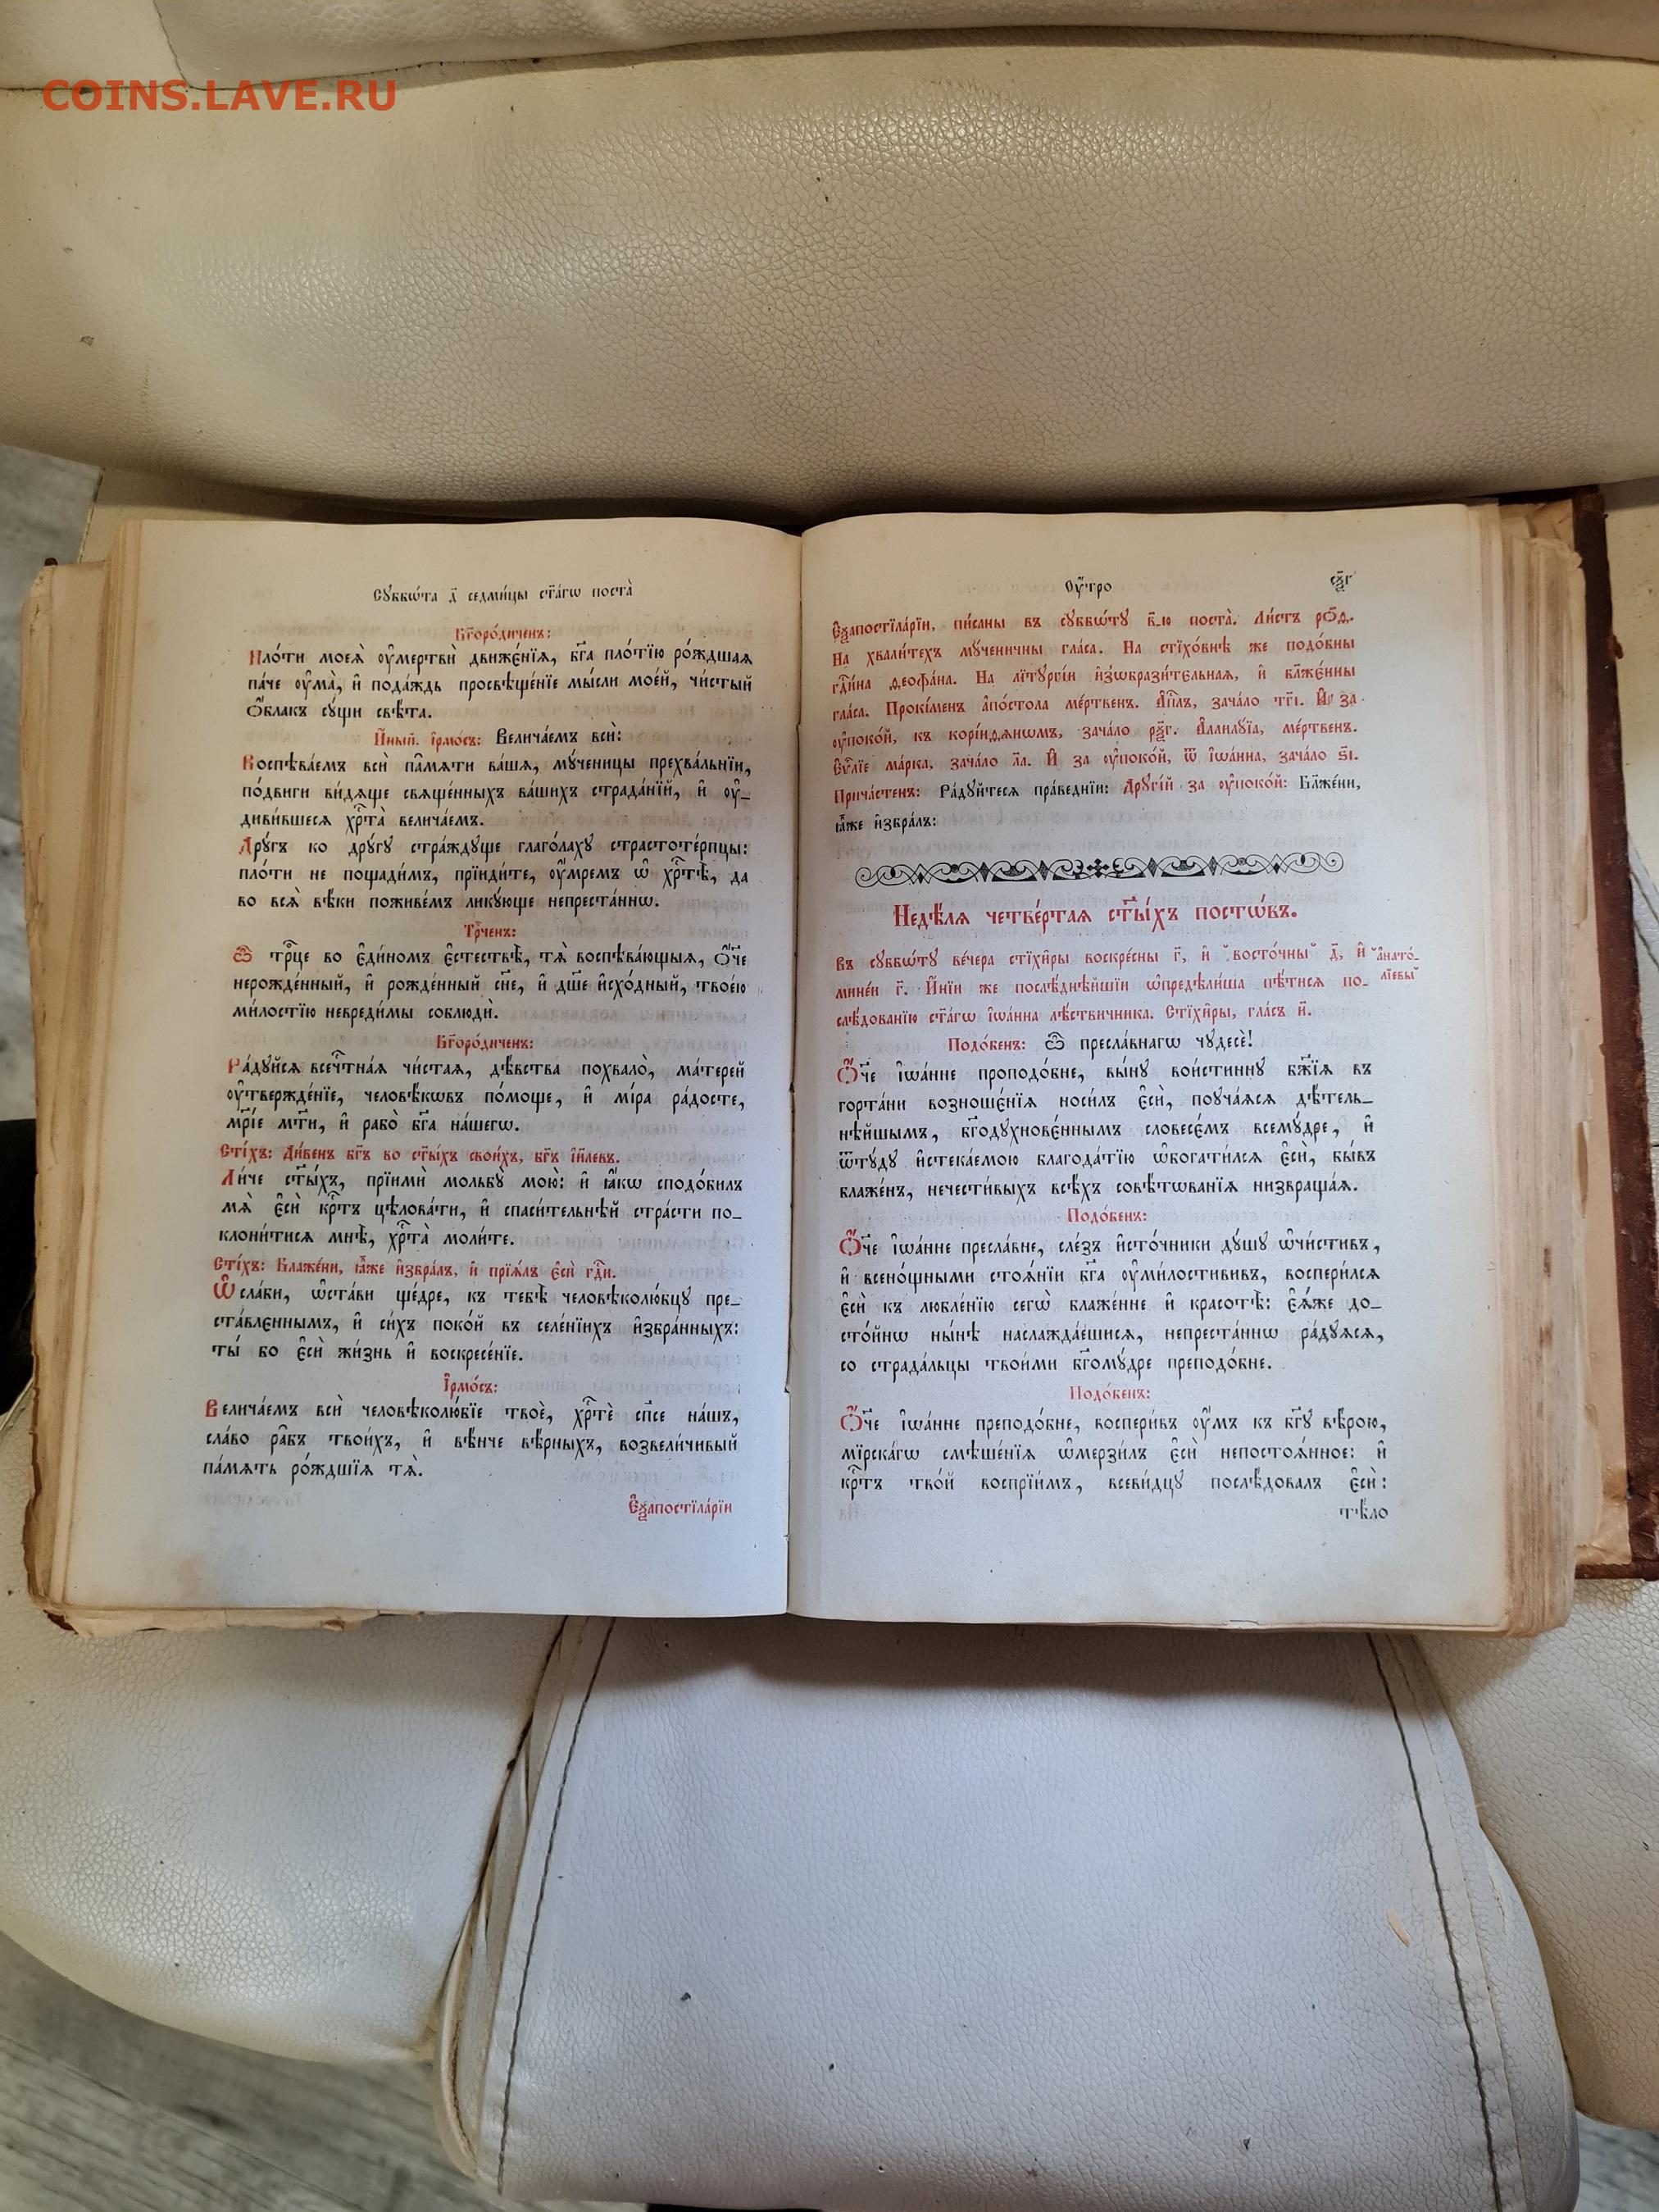 COINS.LAVE.RU
Сꙋббѡ́та д҃ седми́цы ст҃а́гѡ поста̀
Бг҃оро́диченъ:
Пло́ти моеѧ̀ ᲂу҆мертвѝ движє́нїѧ, бг҃а пло́тїю ро́ждшаѧ
па́че ᲂу҆ма̀, и҆ пода́ждь просвѣще́нїе мы́сли мое́й, чи́стый
ѻ҆́блакъ сꙋ́щи свѣ́та.
И҆ны́й. І҆рмо́съ: Велича́емъ всѝ:
Воспѣва́емъ всѝ па́мѧти ва́шѧ, мꙋ́ченицы прехва́льнїи,
по́двиги ви́дѧще свѧще́нныхъ ва́шихъ страда́нїй, и҆ ᲂу҆-
диви́вшесѧ хрⷭ҇та̀ велича́емъ.
Дрꙋ́гъ ко дрꙋ́гꙋ стра́ждꙋще глаго́лахꙋ страстоте́рпцы:
пло́ти не пощади́мъ, прїиди́те, ᲂу҆́мремъ ѡ҆ хрⷭ҇тѣ̀, да
во всѧ̀ вѣ́ки поживе́мъ ликꙋ́юще непреста́ннѡ.
Трⷪ҇ченъ:
Ѽ трⷪ҇це во є҆ди́номъ є҆стествѣ̀, тѧ̀ воспѣва́ющыѧ, ѻ҆́ч҃е
нерожде́нный, и҆ рожде́нный сн҃е, и҆ дш҃е и҆схо́дный, твое́ю
ми́лостїю невреди́мы соблюдѝ.
Бг҃оро́диченъ:
Ра́дꙋйсѧ всечⷭ҇тна́ѧ чи́стаѧ, дѣ́вства похвало̀, ма́терей
ᲂу҆твержде́нїе, человѣ́кѡвъ по́моще, и҆ мі́ра ра́досте,
мр҃і́е мт҃и, и҆ рабо̀ бг҃а на́шегѡ.
Сті́хъ: Ди́венъ бг҃ъ во ст҃ы́хъ свои́хъ, бг҃ъ і҆и҃левъ.
Ли́че ст҃ы́хъ, прїимѝ мольбꙋ̀ мою̀: и҆ ꙗ҆́кѡ сподо́билъ
мѧ̀ є҆сѝ крⷭ҇тъ цѣлова́ти, и҆ спаси́тельнѣй стра́сти по-
клони́тисѧ мнѣ̀, хрⷭ҇та̀ моли́те.
Сті́хъ: Блаже́ни, ꙗ҆̀же и҆збра́лъ, и҆ прїѧ́лъ є҆сѝ гдⷭ҇и.
Ѡ҆сла́би, ѡ҆ста́ви ще́дре, къ тебѣ̀ человѣколю́бцꙋ пре-
ста́вльєннымъ, и҆ си́хъ поко́й въ селе́нїихъ и҆збра́нныхъ:
ты́ бо є҆сѝ жи́знь и҆ воскресе́нїе.
І҆рмо́съ:
Велича́емъ всѝ человѣколю́бїе твоѐ, хрⷭ҇тѐ сп҃се на́шъ,
сла́во ра̑бъ твои́хъ, и҆ вѣ́нче вѣ́рныхъ, возвели́чивый
па́мѧть ро́ждшїѧ тѧ̀.
Є҆ѯапостїла́рїи
Оу҆́тро
сѯ҃г
Є҆ѯапостїла́рїи, пи́саны въ сꙋббѡ́тꙋ в҃-ю поста̀. Ли́стъ рѻ҃д.
На хвали́техъ мꙋ́ченичны гла́са. На стїхо́внѣ же подо́бны
гдⷭ҇и́на ѳеофа́на. На лїтꙋргі́и и҆зѡбрази́тєльнаѧ, и҆ бл҃жє́нны
гла́са. Прокі́менъ а҆по́стола ме́ртвенъ. А҆пⷭ҇лъ, зача́ло тг҃і. И҆ за
ᲂу҆поко́й, къ корі́нѳѧнѡмъ, зача́ло рѯ҃г. А҆ллилꙋ́їа, ме́ртвенъ.
Є҆ѵⷢ҇лїе ма́рка, зача́ло л҃а. И҆ за ᲂу҆поко́й, ѿ і҆ѡа́нна, зача́ло ѕ҃і.
Прича́стенъ: Ра́дꙋйтесѧ пра́веднїи: Дрꙋгі́й за ᲂу҆поко́й: Бл҃же́ни,
ꙗ҆̀же и҆збра́лъ:
Недѣ́лѧ четве́ртаѧ ст҃ы́хъ постѡ́въ.
Въ сꙋббѡ́тꙋ ве́чера стїхи̑ры воскре́сны г҃, и҆ восто́чны д҃, и҆
мине́и г҃. И҆ні́и же послѣднѣ́йшїи ѡ҆предѣли́ша пѣ́тисѧ по-
слѣ́дованїю ст҃а́гѡ і҆ѡа́нна лѣ́ствичника. Стїхи̑ры, гла́съ и҃.
а҆нато́-
лїевы
Подо́бенъ: Ѽ пресла́внагѡ чꙋдесѐ!
Ѻ҆́ч҃е і҆ѡа́нне преподо́бне, вы́нꙋ вои́стиннꙋ бж҃їѧ въ
горта́ни возношє́нїѧ носи́лъ є҆сѝ, поꙋча́ѧсѧ дѣ́тель-
нѣйшымъ, бг҃одꙋхнове́ннымъ словесє́мъ всемꙋ́дре, и҆
ѿтꙋ́дꙋ и҆стека́емою благода́тїю ѡ҆богати́лсѧ є҆сѝ, бы́въ
блаже́нъ, нечести́выхъ всѣ́хъ совѣ́тѡванїѧ низвраща́ѧ.
Подо́бенъ:
Ѻ҆́ч҃е і҆ѡа́нне пресла́вне, сле́зъ и҆сто́чники дꙋ́шꙋ ѡ҆чи́стивъ,
и҆ всено́щными стоѧ́нїи бг҃а ᲂу҆ми́лостививъ, воспери́лсѧ
є҆сѝ къ любле́нїю сегѡ̀ блаже́нне и҆ красотѣ̀: є҆ѧ́же до-
сто́йнѡ ны́нѣ наслажда́ешисѧ, непреста́ннѡ ра́дꙋѧсѧ,
со страда́льцы твои́ми бг҃омꙋ́дре преподо́бне.
Подо́бенъ:
Ѻ҆́ч҃е і҆ѡа́нне преподо́бне, воспери́въ ᲂу҆́мъ къ бг҃ꙋ вѣ́рою,
мїрска́гѡ смѣше́нїѧ ѡ҆мерзи́лъ є҆сѝ непостоѧ́нное: и҆
крⷭ҇тъ тво́й воспрїи́мъ, всеви́дцꙋ послѣ́довалъ є҆сѝ:
тѣ́ло